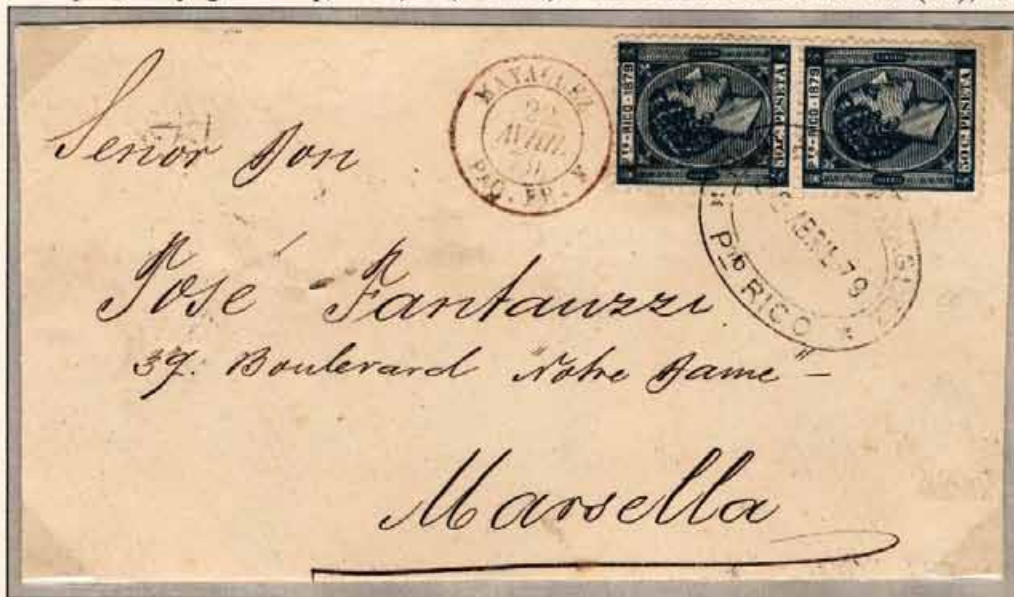 MAYAGUEZ
AVRIL
PAQ. FR.
Pto RICO - 1879
50 Cs PESETA
Pto RICO - 1879
50 Cs PESETA
ABRIL 79
Pto RICO
Senor Don
José Fantauzzi
39. Boulevard Notre Dame -
Marsella